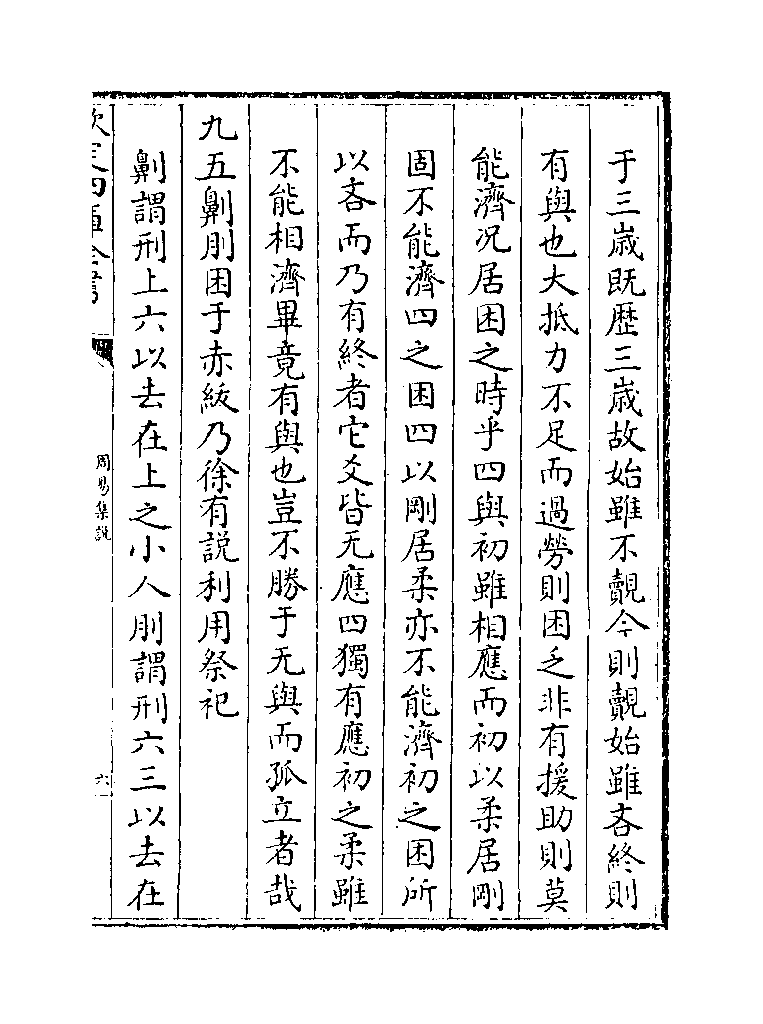 于三歲既歴三歲故始雖不覿今則覿始雖吝終則
有與也大抵力不足而過勞則困乏非有援助則莫
能濟况居困之時乎四與初雖相應而初以柔居剛
固不能濟四之困四以剛居柔亦不能濟初之困所
以吝而乃有終者它爻皆无應四獨有應初之柔雖
不能相濟畢竟有與也豈不勝于无與而孤立者哉
九五劓刖困于赤紱乃徐有説利用祭祀
劓謂刑上六以去在上之小人刖謂刑六三以去在
欽定四庫全書
周易集説
六